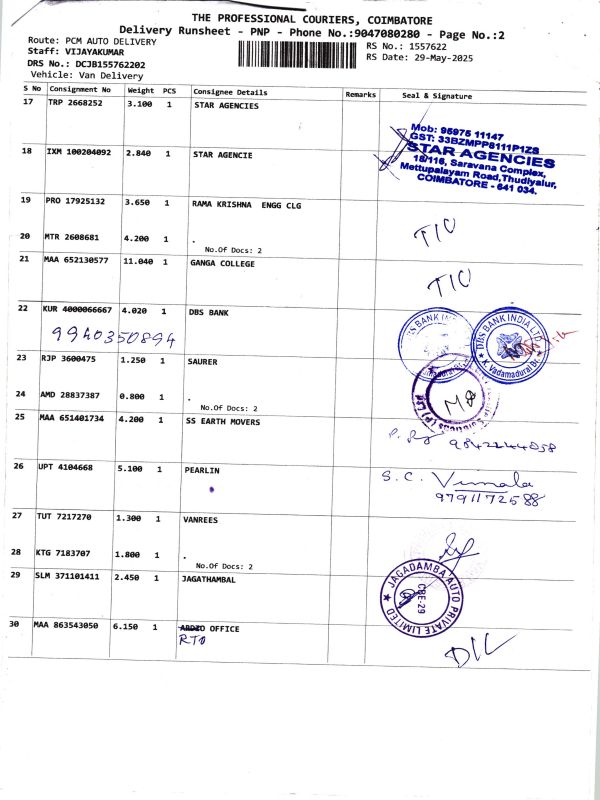 THE PROFESSIONAL COURIERS, COIMBATORE
Delivery Runsheet - PNP - Phone No.:9047080280 - Page No.:2
Route: PCM AUTO DELIVERY RS No.: 1557622
Staff: VIJAYAKUMAR RS Date: 29-May-2025
DRS No.: DCJB155762202
Vehicle: Van Delivery
S No Consignment No Weight PCS Consignee Details Remarks Seal & Signature
17 TRP 2668252 3.100 1 STAR AGENCIES
Mob: 95975 11147
GST: 33BZMPP8111P1ZS
STAR AGENCIES
18/116, Saravana Complex,
Mettupalayam Road,Thudiyalur,
COIMBATORE - 641 034.
18 IXM 100204092 2.840 1 STAR AGENCIE
19 PRO 17925132 3.650 1 RAMA KRISHNA ENGG CLG
20 MTR 2608681 4.200 1 .
No.Of Docs: 2
21 MAA 652130577 11.040 1 GANGA COLLEGE
22 KUR 4000066667 4.020 1 DBS BANK
9940350894
DBS BANK INDIA LTD.
K. Vadamadurai Br.
23 RJP 3600475 1.250 1 SAURER
24 AMD 28837387 0.800 1 .
No.Of Docs: 2
25 MAA 651401734 4.200 1 SS EARTH MOVERS
9842244058
26 UPT 4104668 5.100 1 PEARLIN
S. C. Vimala
9791172588
27 TUT 7217270 1.300 1 VANREES
28 KTG 7183707 1.800 1 .
No.Of Docs: 2
29 SLM 371101411 2.450 1 JAGATHAMBAL
JAGADAMBA AUTO PRIVATE LIMITED
CBE-29
30 MAA 863543050 6.150 1 OFFICE
RTO